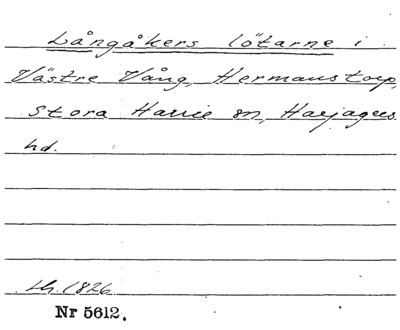 Långåkers lötarne i
Västre Vång, Hermanstorp,
Stora Harrie sn, Harjagers
hd.
Lh. 1826
Nr 5612.